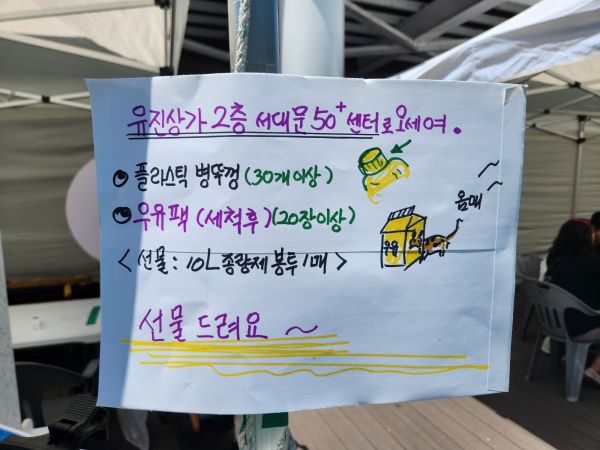 유진상가 2층 서대문 50+센터로 오세여.
플라스틱 병뚜껑 (30개 이상)
우유팩 (세척후) (20장이상)
음매
우유
<선물 : 10L 종량제 봉투 1매>
선물 드려요 ~